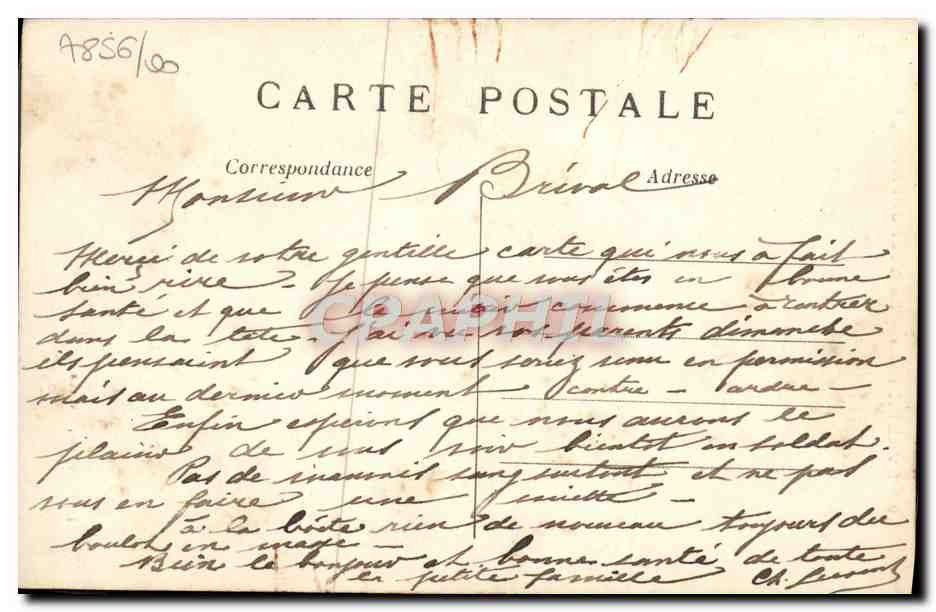 A856/00
CARTE POSTALE
Correspondance
Adresse
Monsieur Bréval
Merci de votre gentille carte qui nous a fait
bien rire - Je pense que vous êtes en bonne
santé et que le commence à rentrer
dans la tete - J'ai vu vos parents dimanche
ils pensaient que vous seriez venu en permission
mais au dernier moment contre-ordre -
Enfin esperons que nous aurons le
plaisir de vous voir bientot en soldat.
Pas de mauvais sang surtout et ne pas
vous en faire une miette -
à la boîte rien de nouveau toujours du
boulot en masse -
Bien le bonjour et bonne santé de toute
la petite famille Ch.
CPAPHIL